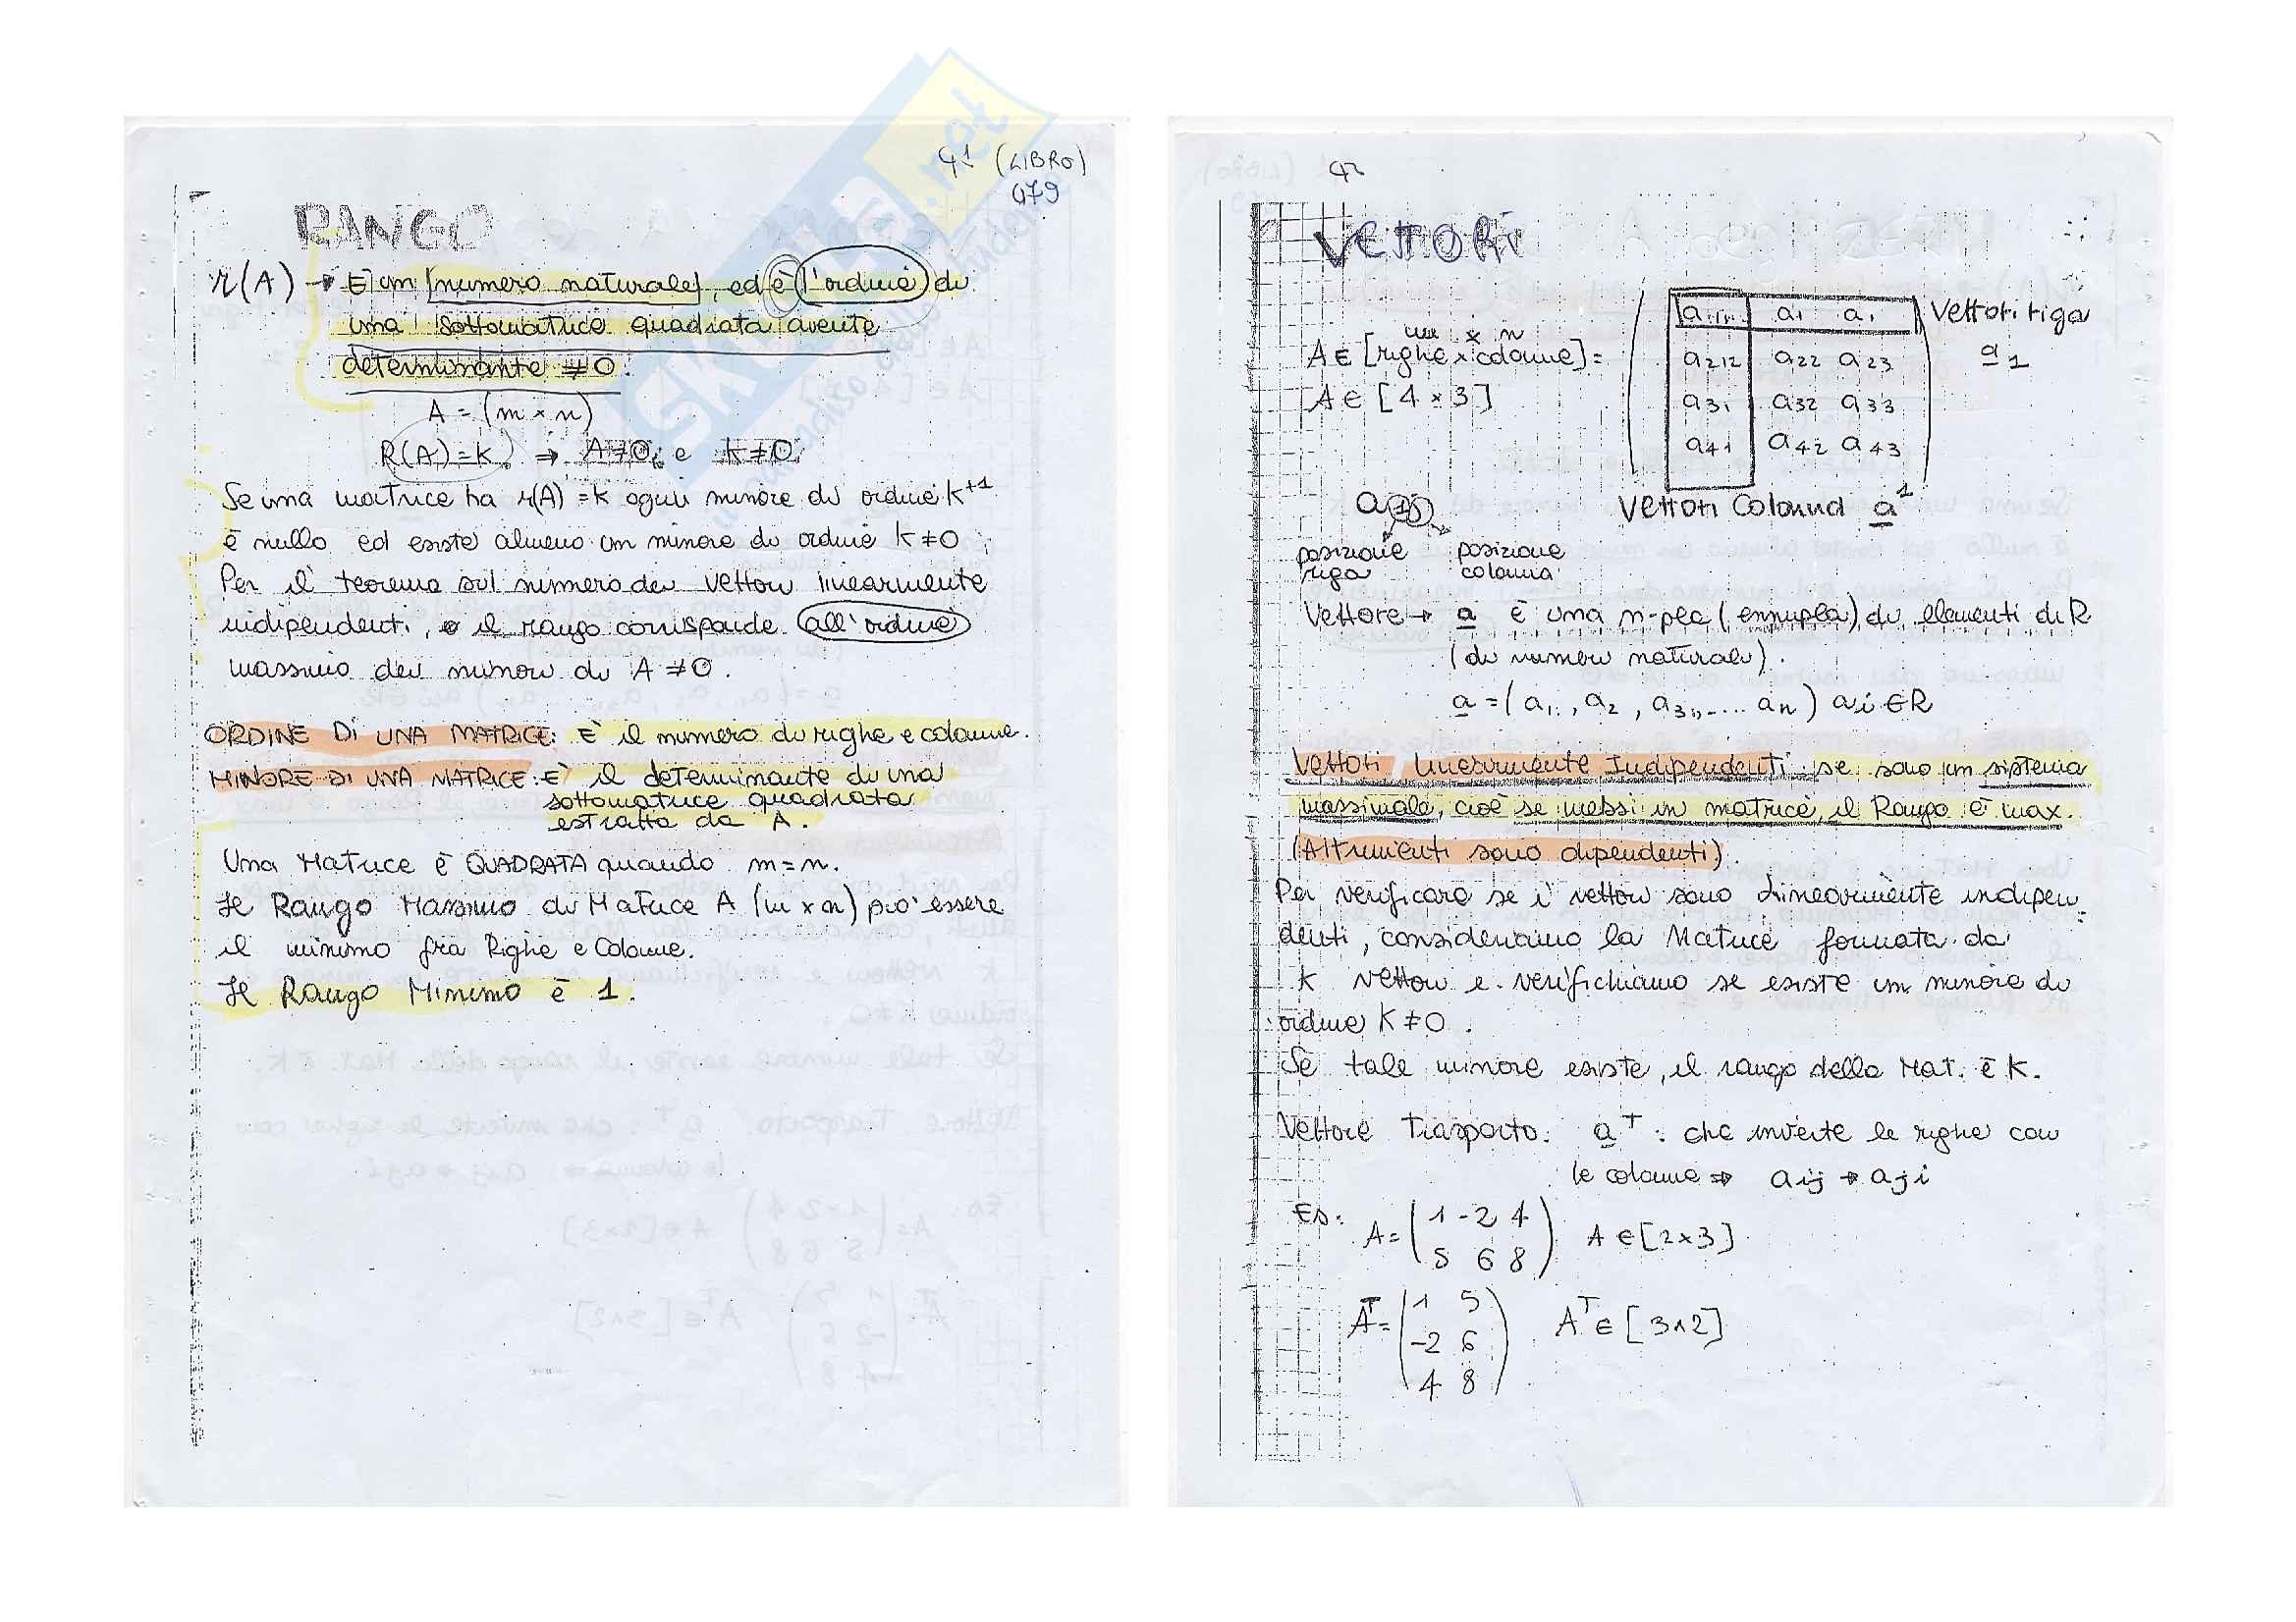 41 (LIBRO)
479
RANGO
r(A) → È un numero naturale, ed è l'ordine di
una sottomatrice quadrata avente
determinante ≠ 0.
A = (m × n)
R(A) = k ⇒ A ≠ 0, e k ≠ 0
Se una matrice ha r(A) = k ogni minore di ordine k+1
è nullo ed esiste almeno un minore di ordine k ≠ 0
Per il teorema sul numero dei vettori linearmente
indipendenti, il rango corrisponde all'ordine
massimo dei minori di A ≠ 0.
ORDINE DI UNA MATRICE: È il numero di righe e colonne.
MINORE DI UNA MATRICE: È il determinante di una
sottomatrice quadrata
estratta da A.
Una Matrice è QUADRATA quando m = n.
Il Rango Massimo di Matrice A (m × n) può essere
il minimo fra Righe e Colonne.
Il Rango Minimo è 1.
42
VETTORI
m × n
A ∈ [righe × colonne] =
A ∈ [4 × 3]
a11 a1 a1 Vettori riga
a212 a22 a23 a1
a31 a32 a33
a41 a42 a43
Vettori Colonna a1
posizione riga posizione colonna
Vettore → a è una n-pla (ennupla) di elementi di R
(di numeri naturali).
a = (a1, a2, a3, .... an) ai ∈ R
Vettori Linearmente Indipendenti: se sono un sistema
massimale, cioè se messi in matrice, il Rango è max.
(Altrimenti sono dipendenti).
Per verificare se i vettori sono Linearmente indipen-
denti, consideriamo la Matrice formata da
k vettori e verifichiamo se esiste un minore di
ordine k ≠ 0.
Se tale minore esiste, il rango della Mat. è k.
Vettore Trasposto: aT: che inverte le righe con
le colonne ⇒ aij → aji
Es: A = ( 1 -2 4 A ∈ [2×3]
5 6 8 )
AT = ( 1 5
-2 6 AT ∈ [3×2]
4 8 )